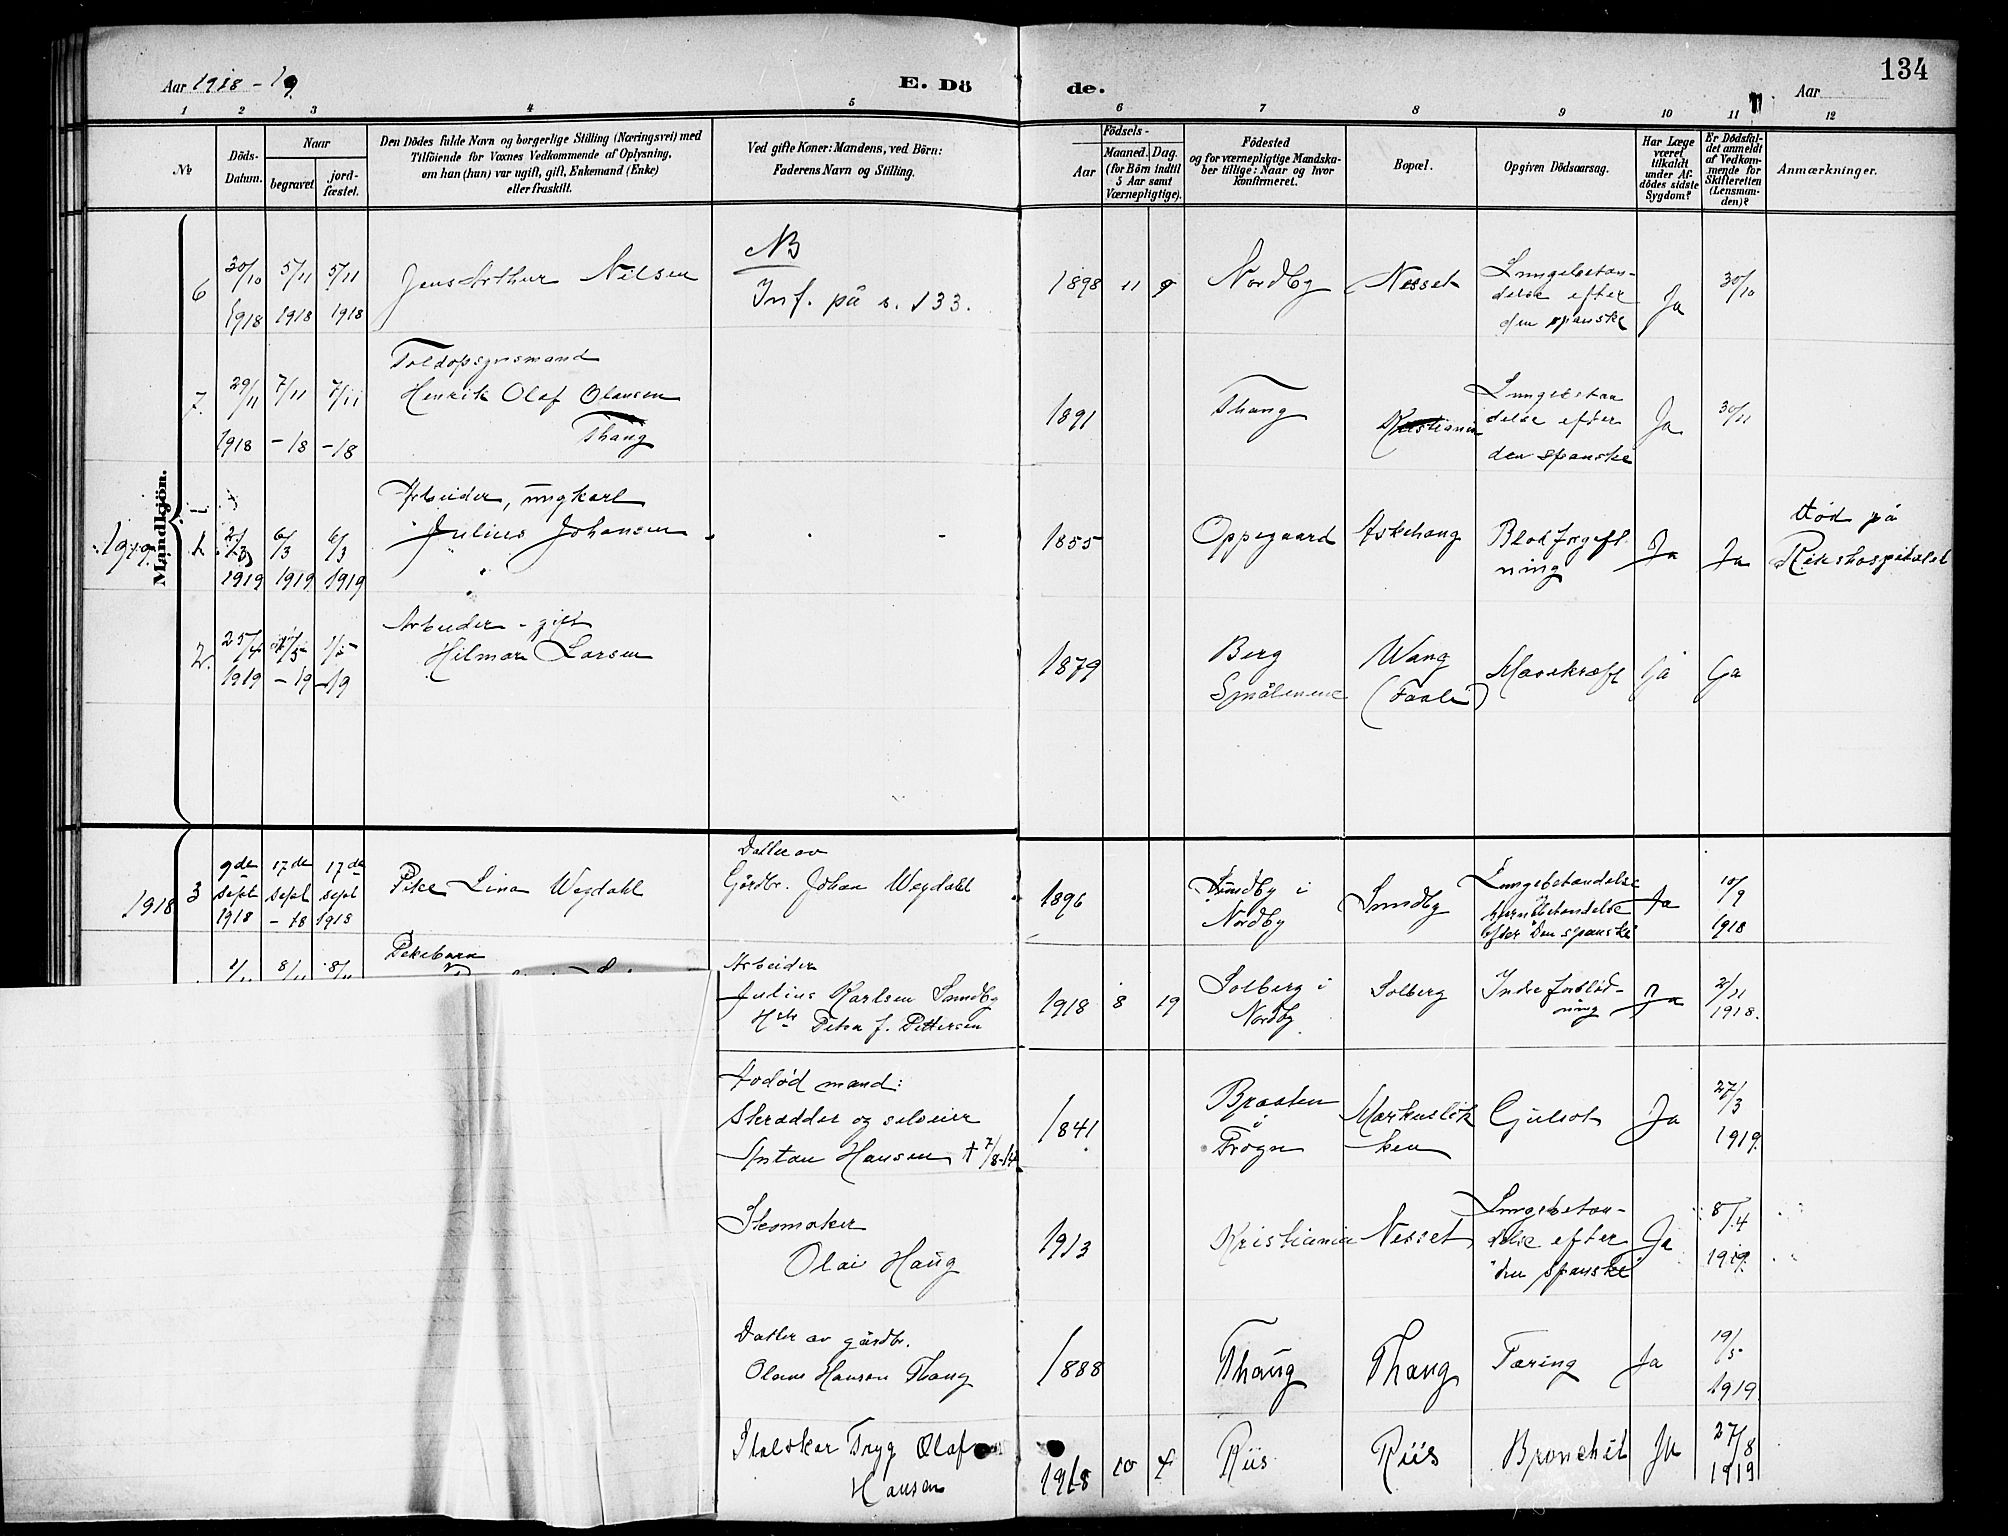 134
Aar 1918 - 19.
E. Dö
de.
Aar
1 2 3 4 5 6 7 8 9 10 11 12
№
Döds-Datum.
Naar
begravet.
jord-fæstet.
Den Dödes fulde Navn og borgerlige Stilling (Næringsvei) med
Tilföiende for Voxnes Vedkommende af Oplysning,
om han (hun) var ugift, gift, Enkemand (Enke)
eller fraskilt.
Ved gifte Koner: Mandens, ved Börn:
Faderens Navn og Stilling.
Födsels-
Aar
Maaned. Dag.
(for Börn indtil
5 Aar samt
Værnepligtige).
Födested
og for værnepligtige Mandska-
ber tillige: Naar og hvor
konfirmeret.
Bopæl.
Opgiven Dödsaarsag.
Har Læge
været
tilkaldt
under Af-
dödes sidste
Sygdom?
Er Dödsfal-
det anmeldt
af Vedkom-
mende for
Skifteretten
(Lensman-
den)?
Anmærkninger.
Mandkjön.
6 30/10 1918 5/11 1918 5/11 1918
Jens Arthur Nilsen
NB
Inf. på s. 133.
1898 11 9 Nordby Nesset
Lungebetæn-
delse efter
den spanske
Ja 30/10
7. 29/11 1918 7/11 -18 7/11 -18
Toldopsynsmand
Henrik Olaf Olausen
Thaug
1891 Thaug Kristiania
Lungebetæn
delse efter
den spanske
Ja 30/11
1919. 1. 2/3 1919 6/3 1919 6/3 1919
Arbeider, ungkarl
Julius Johansen
1855 Oppegaard Askehaug
Blodforgift-
ning
Ja Ja
død på
Rikshospitalet
2. 25/4 1919 1/5 -19 1/5 -19
Arbeider - gift
Hilmar Larsen
1879
Berg
Smålenene
Wang
(Faale)
Mavekræft Ja Ja
1918 3 9de sept 1918 17de sept -18 17de sept 1918
Pike Lina Wegdahl
Datter av
Gårdbr. Johan Wegdahl
1896
Sundby i
Nordby
Sundby
Lungebetændelse
hjernebetændelse
efter "Den spanske"
Ja 10/9 1918
1/11 8/11 8/11
Pikebarn
Arbeider
Julius Karlsen Sundby
Hstr Petra J. Pettersen
1918 8 19
Solberg i
Nordby.
Solberg
Indre forblød-
ning
Ja 2/11 1918.
Avdød mand:
Skrædder og selveier
Antan Hansen † 7/8-14
1841.
Braaten
i
Frogn
Markuslök
ken
Gulsot Ja 27/3 1919.
Skomaker
Olai Haug
1913 Kristiania Nesset
Lungebetæn-
delse efter
"den spanske"
Ja 8/4 1919.
Datter av gårdbr.
Olaus Hansen Thaug
1888 Thaug Thaug Tæring Ja 19/5 1919.
Stalskar Tryg Olaf
Hansen
1918 10 4 Riis Riis Bronchit Ja 27/8 1919